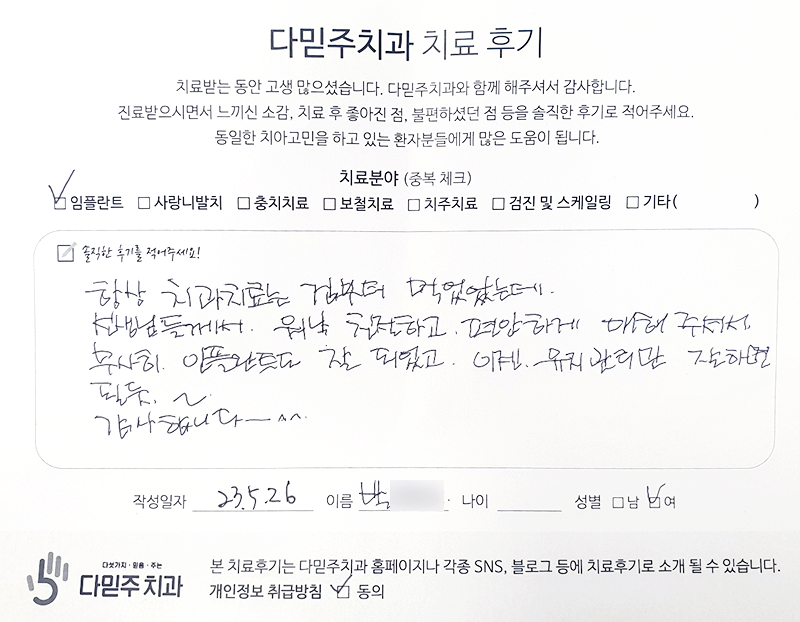 다믿주치과 치료 후기
치료받는 동안 고생 많으셨습니다. 다믿주치과와 함께 해주셔서 감사합니다.
진료받으시면서 느끼신 소감, 치료 후 좋아진 점, 불편하셨던 점 등을 솔직한 후기로 적어주세요.
동일한 치아고민을 하고 있는 환자분들에게 많은 도움이 됩니다.
치료분야 (중복 체크)
임플란트 사랑니발치 충치치료 보철치료 치주치료 검진 및 스케일링 기타( )
솔직한 후기를 적어주세요!
항상 치과치료는 겁부터 먹었었는데.
선생님들께서. 워낙 친절하고. 편안하게 대해 주셔서.
무사히. 임플란트도 잘 되었고. 이젠. 유지관리만 잘하면
될듯. ~.
감사합니다~ ^^.
작성일자 23.5.26 이름 박 나이 성별 남 여
다섯가지·믿음·주는
다믿주치과
본 치료후기는 다믿주치과 홈페이지나 각종 SNS, 블로그 등에 치료후기로 소개 될 수 있습니다.
개인정보 취급방침 동의